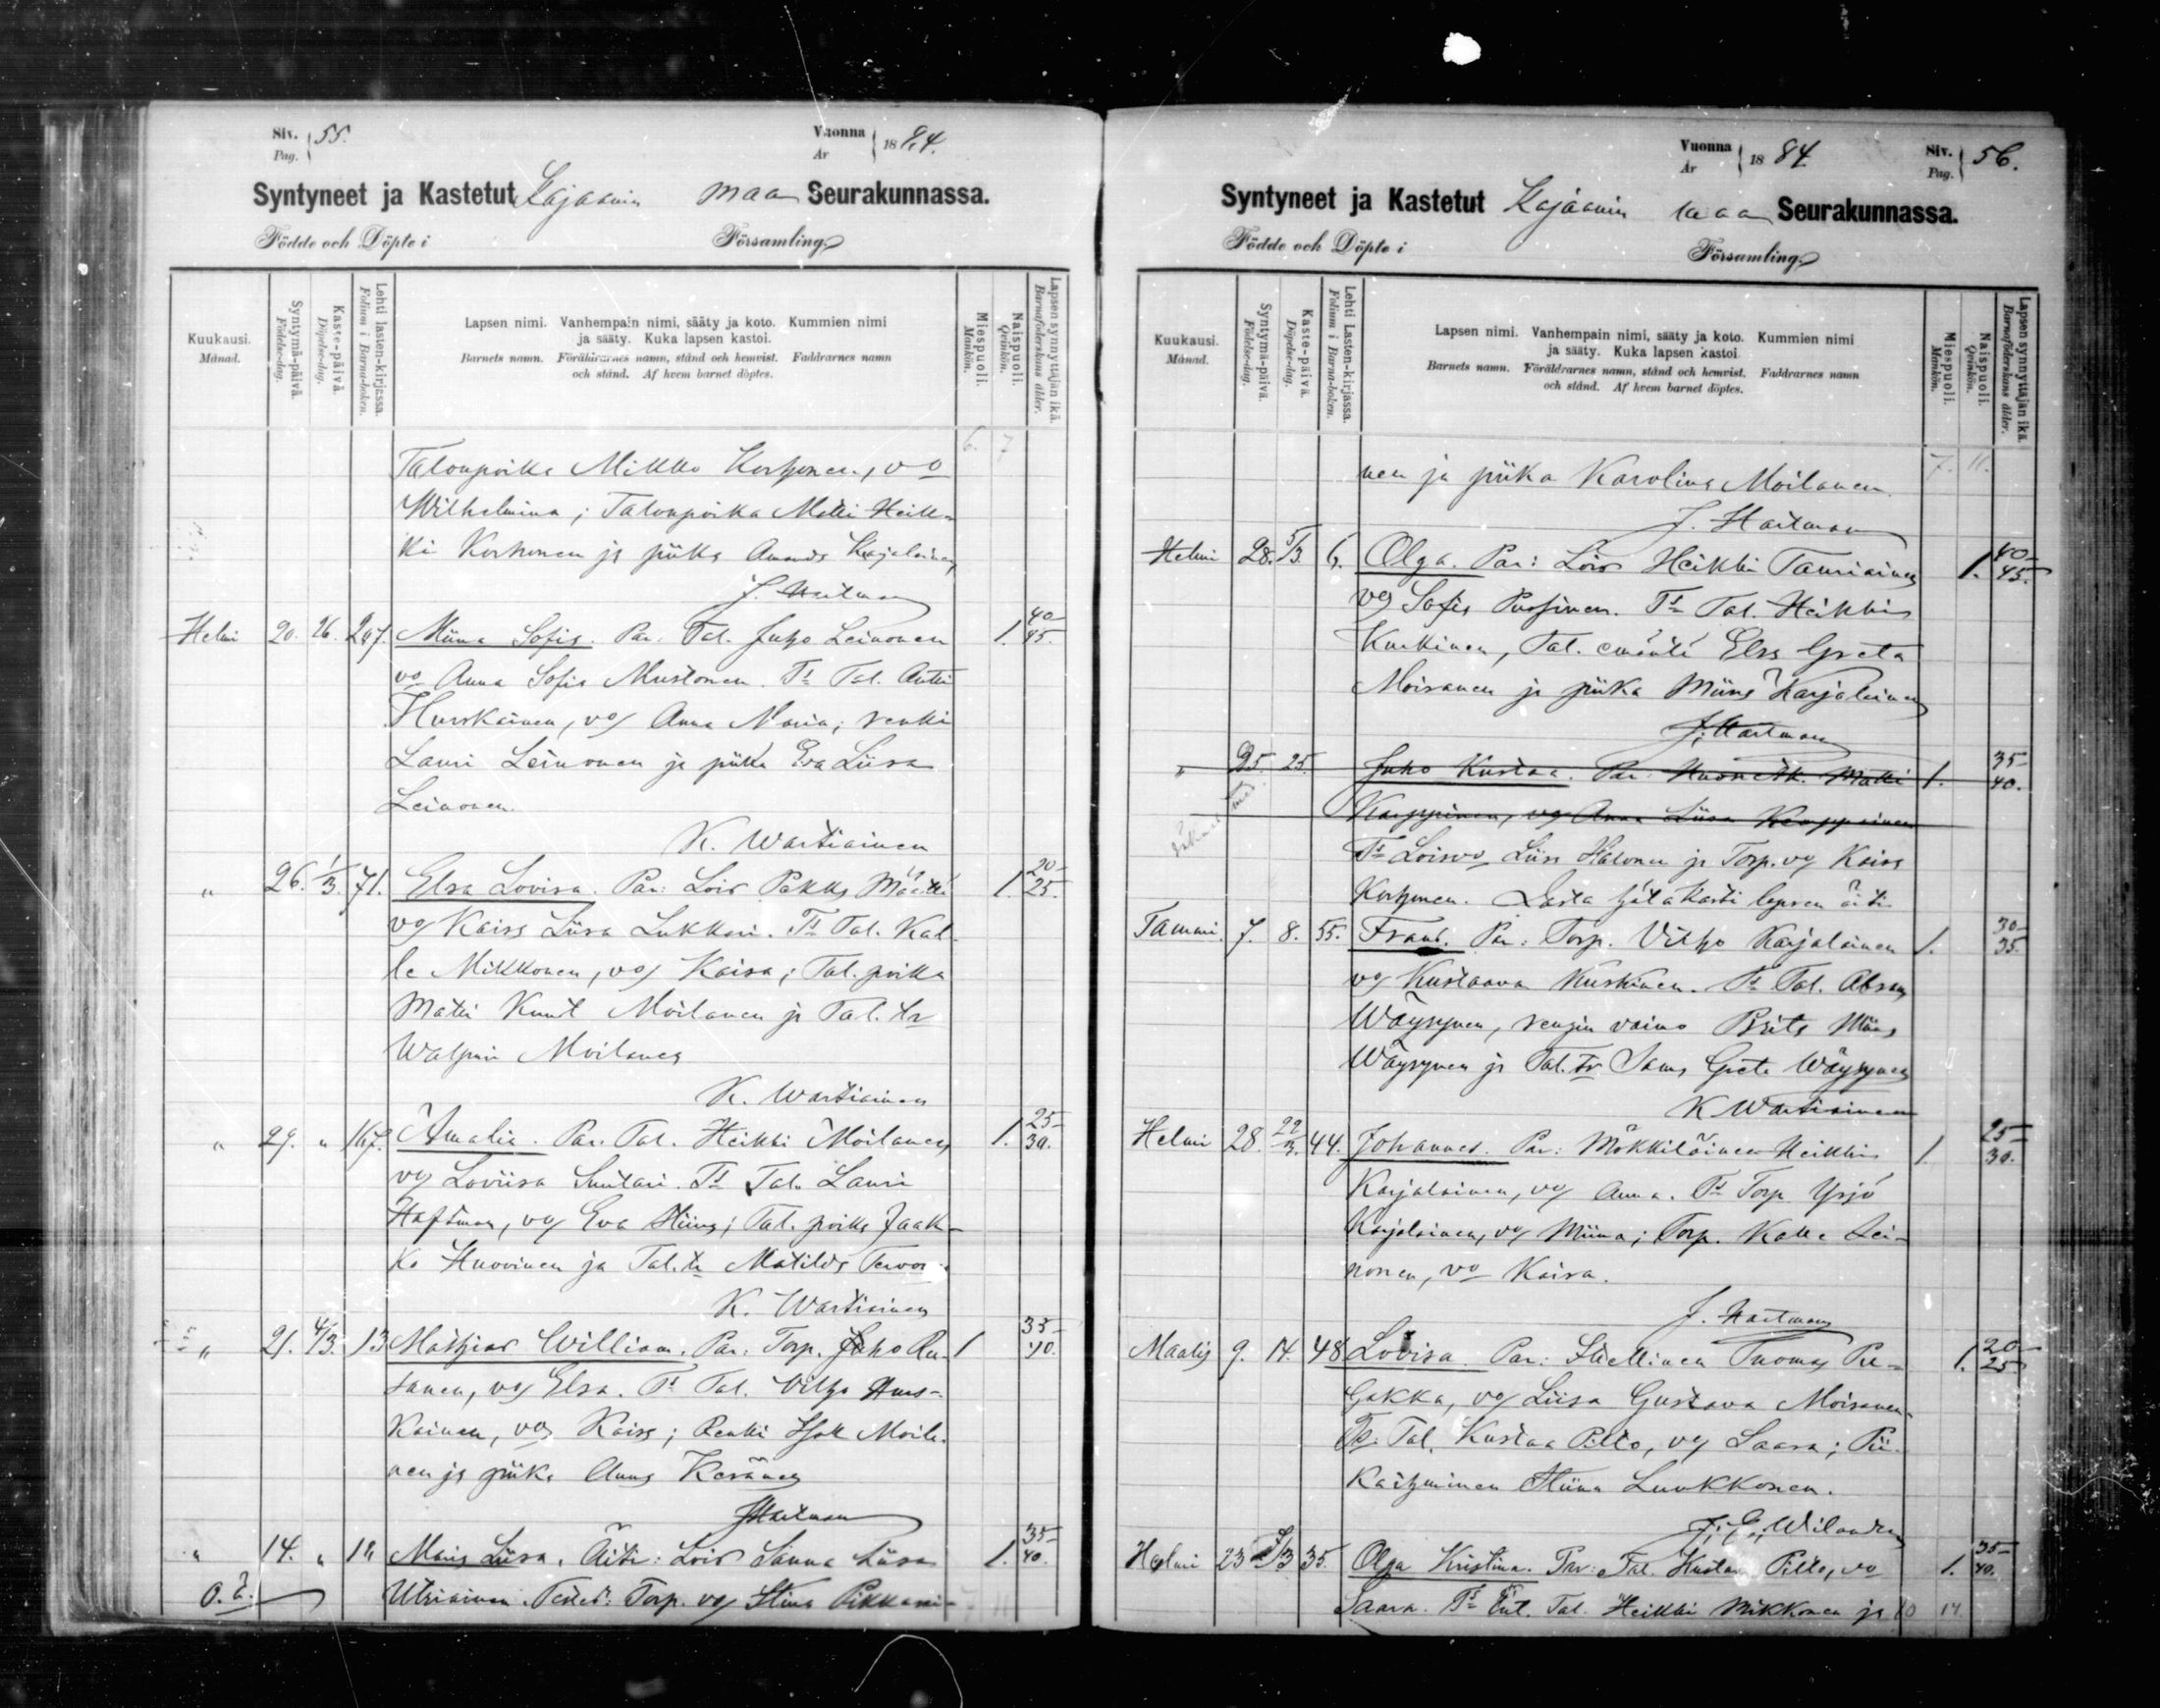 Siv. Pag. 55.
Vuonna År 1884.
Syntyneet ja Kastetut Kajaanin maa Seurakunnassa.
Födde och Döpte i Församling
Kuukausi. Månad.
Syntymä-päivä. Födelse-dag.
Kaste-päivä. Döpelse-dag.
Lehti lasten-kirjassa. Folium i Barna-boken.
Lapsen nimi. Vanhempain nimi, sääty ja koto. Kummien nimi
ja sääty. Kuka lapsen kastoi.
Barnets namn. Föräldrarnes namn, stånd och hemvist. Faddrarnes namn
och stånd. Af hvem barnet döptes.
Miespuoli. Mankön.
Naispuoli. Qvinkön.
Lapsen synnyttäjän ikä. Barnaföderskans ålder.
6. 7
Talonpoika Mikko Korhonen, vo
Wilhelmina; Talonpoika Matti Heik-
ki Korhonen ja piika Amanda Karjalainen
J. Hartman
Helmi 20. 26. 247. Miina Sofia. Par: Tal. Juho Leinonen 1. 40-45.
vo Anna Sofia Mustonen. Ts Tal. Antti
Hurskainen, vo Anna Maria; renki
Lauri Leinonen ja piika Eva Liisa
Leinonen.
K. Wartiainen
" 26. 1/3. 71. Elsa Lovisa. Par: Lois Pekka Määttä 1. 20-25.
vo Kaisa Liisa Lukkari. Ts Tal. Kal-
le Mikkonen, vo Kaisa; Tal. poika
Matti Knut Moilanen ja Tal. tr
Walpuri Moilanen
K. Wartiainen
" 29. " 167. Amalia. Par. Tal. Heikki Moilanen, 1. 25-30.
vo Loviisa Suutari. Ts Tal. Lauri
Haftman, vo Eva Stiina; Tal. poika Jaak-
ko Huovinen ja Tal. tr Matilda Tervo
K. Wartiainen
" 21. 4/3. 13 Mathias William. Par: Torp. Juho Ru- 1 35-40.
sanen, vo Elsa. Ts Tal. Wilho Hurs-
kainen, vo Kaisa; Renki Isak Moila-
nen ja piika Anna Keränen
J Hartman
" 14. " 12. Maria Liisa. Äiti: Lois Sanna Liisa 1. 35-40.
Utriainen. Todist: Torp. vo Stina Pikkarai-
Siv. Pag. 56.
Vuonna År 1884
Syntyneet ja Kastetut Kajaanin maa Seurakunnassa.
Födde och Döpte i Församling
Kuukausi. Månad.
Syntymä-päivä. Födelse-dag.
Kaste-päivä. Döpelse-dag.
Lehti Lasten-kirjassa. Folium i Barna-boken.
Lapsen nimi. Vanhempain nimi, sääty ja koto. Kummien nimi
ja sääty. Kuka lapsen kastoi.
Barnets namn. Föräldrarnes namn, stånd och hemvist. Faddrarnes namn
och stånd. Af hvem barnet döptes.
Miespuoli. Mankön.
Naispuoli. Qvinkön.
Lapsen synnyttäjän ikä. Barnaföderskans ålder.
7. 11.
nen ja piika Karolina Moilanen.
J. Hartman
Helmi 28. 5/3. 6. Olga. Par: Lois Heikki Tauriainen 1. 40-45.
vo Sofia Pursinen. Ts Tal. Heikki
Kurkinen, Tal. emäntä Elsa Greta
Moisanen ja piika Miina Karjalainen
J. Hartman
" 25. 25. Juho Kustaa. Par: Huonetk. Matti 1. 35-40.
Karppinen, vo Anna Liisa Karppinen
Ts Lois vo Liisa Halonen ja Torp. vo Kaisa
Korhonen. Lasta hätäkasti lapsen äiti
Tammi. 7. 8. 55. Frans. Par: Torp. Vilho Karjalainen 1. 30-35.
vo Kustaava Kurkinen. Ts Tal. Abram
Wäyrynen, rengin vaimo Brita Miina
Wäyrynen ja Tal. tr Sanna Greta Wäyrynen
K Wartiainen
Helmi 28. 22/3. 44. Johannes. Par: Mökkiläinen Heikki 1. 25-30.
Karjalainen, vo Anna. Ts Torp. Yrjö
Karjalainen, vo Miina; Torp. Kalle Lei-
nonen, vo Kaisa.
J. Hartman
Maalis 9. 14. 48 Lovisa. Par: Itsellinen Tuomas Pu- 1. 20-25
hakka, vo Liisa Gustava Moisanen.
Ts. Tal. Kustaa Piltto, vo Saara; Pii-
kaihminen Stiina Luukkonen.
J. G. Wilander
Helmi 23 5/3 35. Olga Kristina. Par: Tal. Kustaa Piltto, vo 1. 35-40.
Saara. Ts Ent. Tal. Heikki Mikkonen ja 10 14